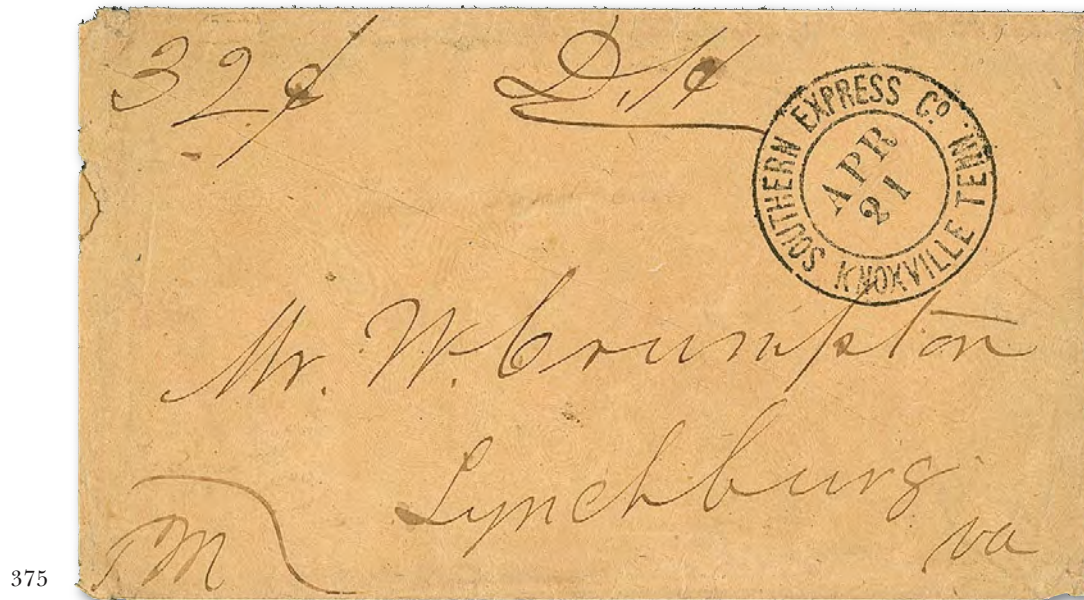 32¢ D.H
SOUTHERN EXPRESS Co KNOXVILLE TENN
APR
21
Mr. W. Crumpton
Lynchburg
va
M
375